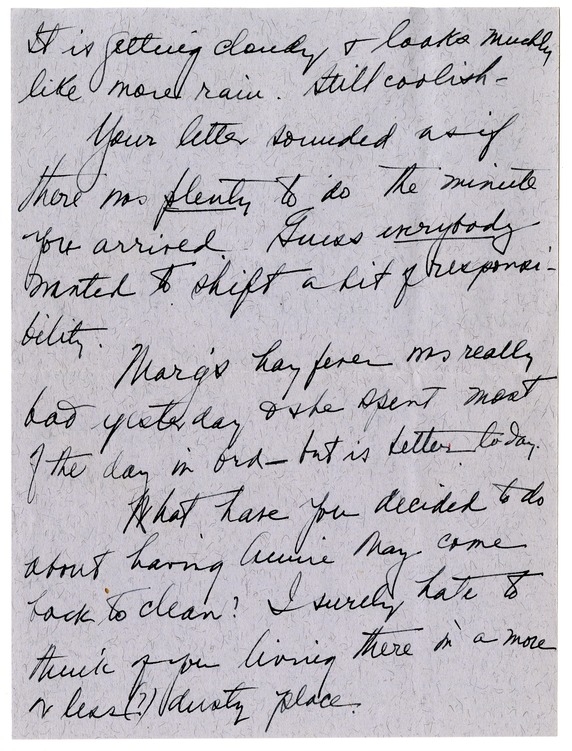 It is getting cloudy & looks muchly
like more rain. Still coolish –
Your letter sounded as if
there was plenty to do the minute
you arrived. Guess everybody
wanted to shift a bit of responsi-
bility.
Marg's hay fever was really
bad yesterday & she spent most
of the day in bed – but is better today.
What have you decided to do
about having Annie May come
back to clean? I surely hate to
think of you living there in a more
or less (?) dusty place.